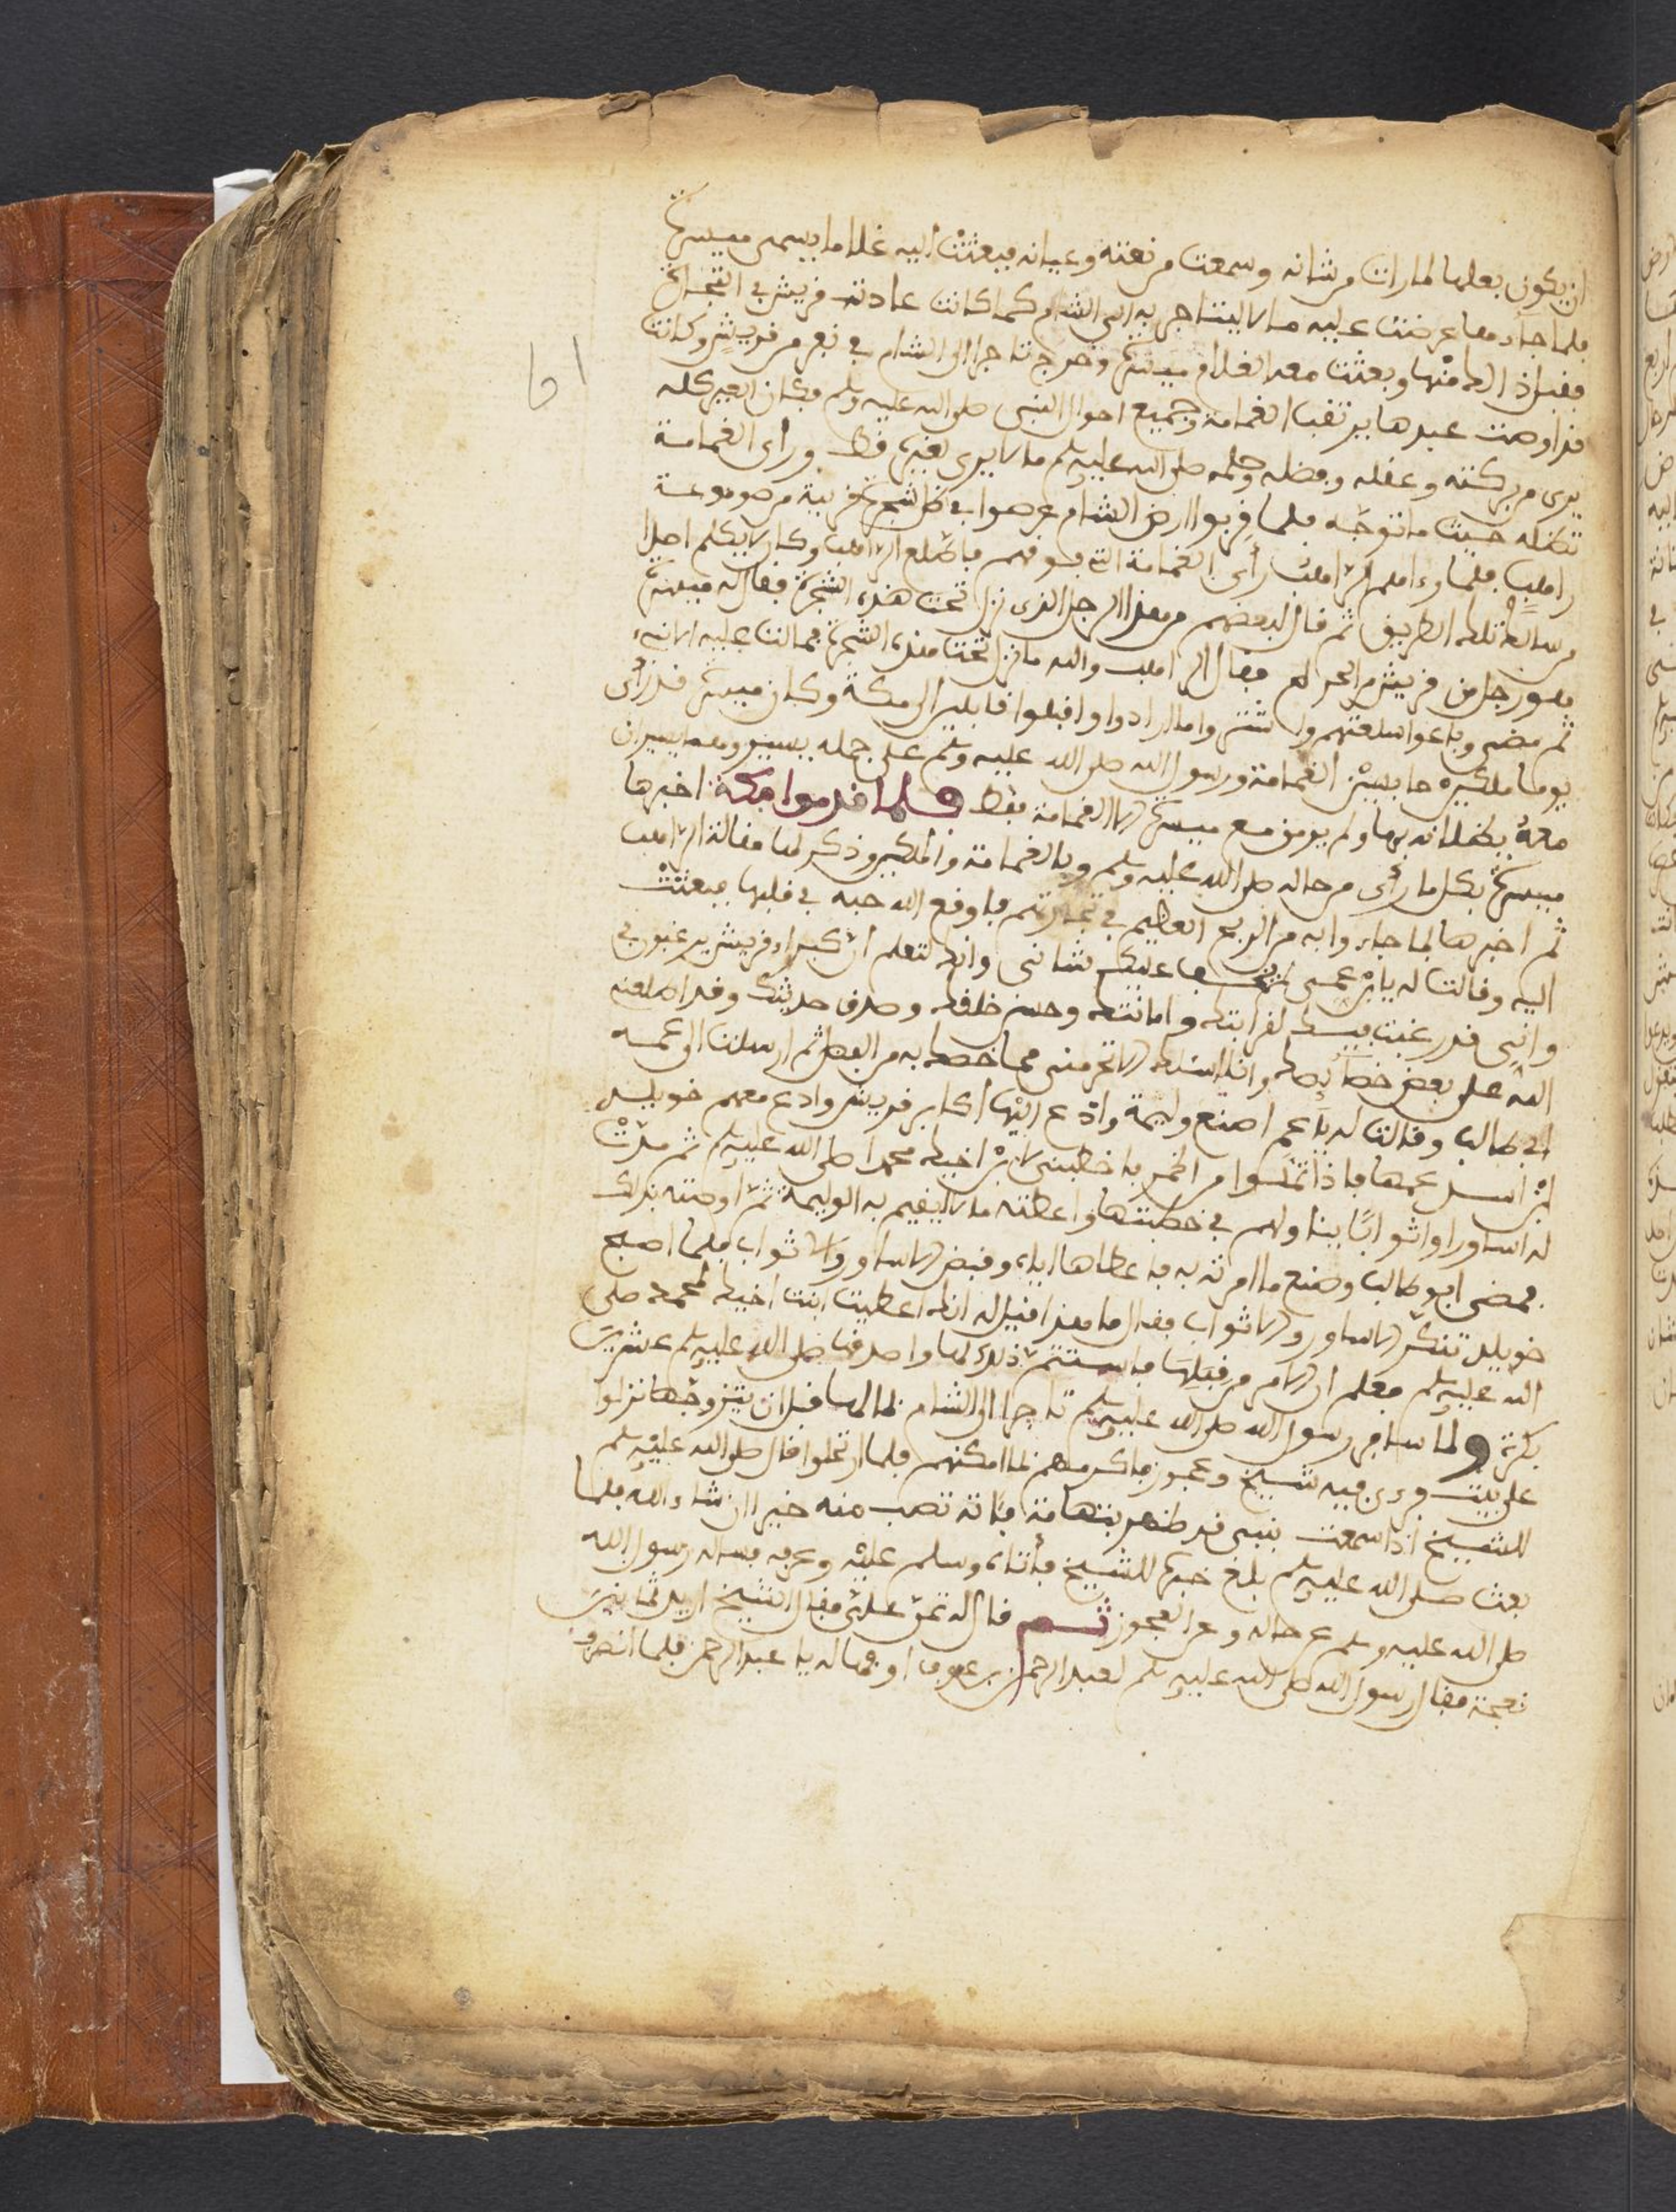 ان يكون بعلها لما رات من شانه وسمعت من نعته وعيانه فبعثت اليه غلاما يسمى ميسرة
فلما جاءها عرضت عليه مالا ليتاجر به الى الشام كما كانت عادة قريش في التجارة
فقبل ذالك منها وبعثت معه الغلام ميسرة وخرج تاجرا الى الشام في نفر من قريش وكانت
قد اوصت عبدها يرتقب الغمامة وجميع احوال النبي صلى الله عليه وسلم فكان العير كله
يرى من بركته وعقله وفضله وحلمه صلى الله عليه وسلم ما لا يرى لغيره قط ورأى الغمامة
تظله حيث ما توجه فلما قربوا ارض الشام عرصوا في ظل شجرة قريبة من صومعة
راهب فلما رءاهم الراهب رأى الغمامة التي فوقهم فاطلع الراهب وكان لا يكلم اصلا
من سالك تلك الطريق ثم قال لبعضهم من هذا الرجل الذى نزل تحت هذه الشجرة فقال له ميسرة
هو رجل من قريش من الحرم فقال الراهب والله ما نزل تحت هذه الشجرة فمالت عليه الا نبىء
ثم مضى وباعوا سلعتهم واشتروا ما ارادوا واقبلوا قافلين الى مكة وكان ميسرة قد رأى
يوما ملكين حابسين الغمامة ورسول الله صلى الله عليه وسلم على جمله يسير وهما يسيران
معه يظلانه بها ولم يومن مع ميسرة الا الغمامة فقط فلما قدموا مكة اخبرها
ميسرة بكل ما رأى من حاله صلى الله عليه وسلم وبالغمامة والملكين وذكر لها مقالة الراهب
ثم اخبرها لما جاءوا به من الربح العظيم في تجارتهم فاوقع الله حبه في قلبها فبعثت
اليه وقالت له يابن عمى عليك شانى وانك لتعلم ان كبراء قريش يرغبون في
وانى قد رغبت فيك لقرابتك وامانتك وحسن خلقك وصدق حديثك وقد اطلعنى
الله على بعض خصآيصك وانا اسئلك الا تحرمنى مما خصك به من الفضل ثم ارسلت الى عمه
ابى طالب وقالت له يا عم اصنع وليمة وادع اليها اكابر قريش وادع معهم خويلد
ابن اسد عمها فاذا ثملوا من الخمر فاخطبنى لابن اخيك محمد صلى الله عليه وسلم ثم مدت
له اساور واثوابا ينا ولهم في خطبتها واعطته مالا ليقيم به الوليمة ثم اوصته بذلك
فمضى ابو طالب وصنع ما امرته به فاعطاها اياه وقبض الاساور والاثواب فلما اصبح
خويلد تنكر الاساور والاثواب فقال ما هذا قيل له انك اعطيت ابنت اخيك لمحمد صلى
الله عليه وسلم فعلم ان الامر من قبلها فاستتم ذلك لها واصدقها صلى الله عليه وسلم عشرين
بكرة ولما سافر رسول الله صلى الله عليه وسلم تاجرا الى الشام لما لها قبل ان يتزوجها نزلوا
على بيت فيه شيخ وعجوز فاكرمهم لما امكنهم فلما ارتحلوا قال صلى الله عليه وسلم
للشيخ اذا سمعت بنبى قد ظهر بتهامة فاته تصب منه خيرا ان شاء الله فلما
بعث صلى الله عليه وسلم بلغ خبره للشيخ فأتاه وسلم عليه وعرفه فساله رسول الله
صلى الله عليه وسلم عن حاله وعن العجوز ثم قال له تمن على فقال الشيخ اريد ثمانين
نعجة فقال رسول الله صلى الله عليه وسلم لعبد الرحمن بن عوف اوفها له يا عبد الرحمن فلما انصرف